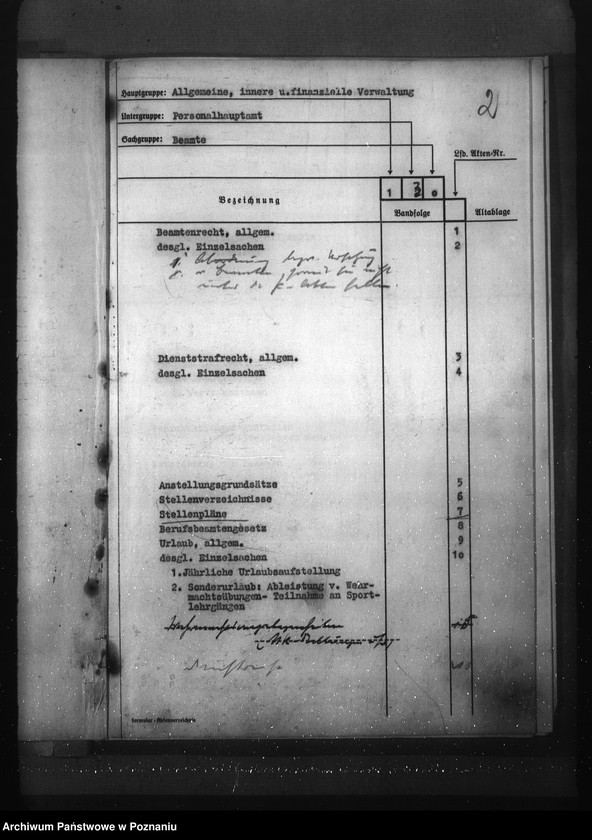 2
Hauptgruppe: Allgemeine, innere u.finanzielle Verwaltung
Untergruppe: Personalhauptamt
Sachgruppe: Beamte
Lfd. Akten-Nr.
Bezeichnung 1 3 o
Bandfolge Altablage
Beamtenrecht, allgem. 1
desgl. Einzelsachen 2
Dienststrafrecht, allgem. 3
desgl. Einzelsachen 4
Anstellungsgrundsätze 5
Stellenverzeichnisse 6
Stellenpläne 7
Berufsbeamtengesetz 8
Urlaub, allgem. 9
desgl. Einzelsachen 1o
1.Jährliche Urlaubsaufstellung
2. Sonderurlaub: Ableistung v. Wehr-
machtsübungen- Teilnahme an Sport-
lehrgängen
Formular - Aktenverzeichnis
Archiwum Państwowe w Poznaniu